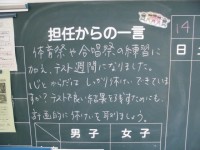 担任からの一言
体育祭や合唱祭の練習に
加え、テスト週間になりました。
心とからだは しっかり休けいできていま
すか？テストで良い結果を残すためにも、
計画的に休けいを取りましょう。
男子 女子
14
日